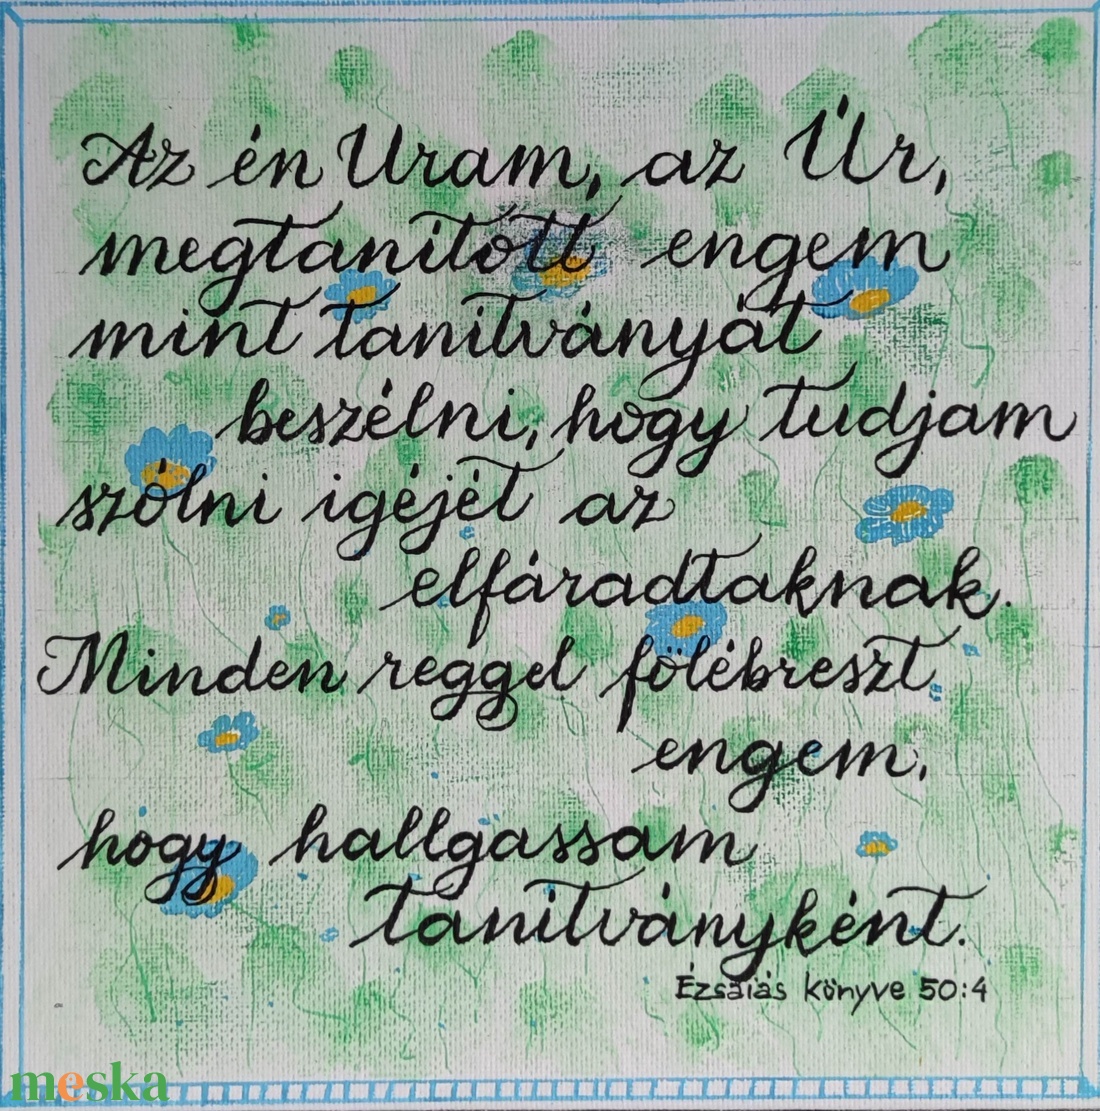 Az én Uram, az Úr,
megtanított engem
mint tanítványát
beszélni, hogy tudjam
szólni igéjét az
elfáradtaknak.
Minden reggel fölébreszt
engem,
hogy hallgassam
tanítványként.
Ézsaiás könyve 50:4
meska